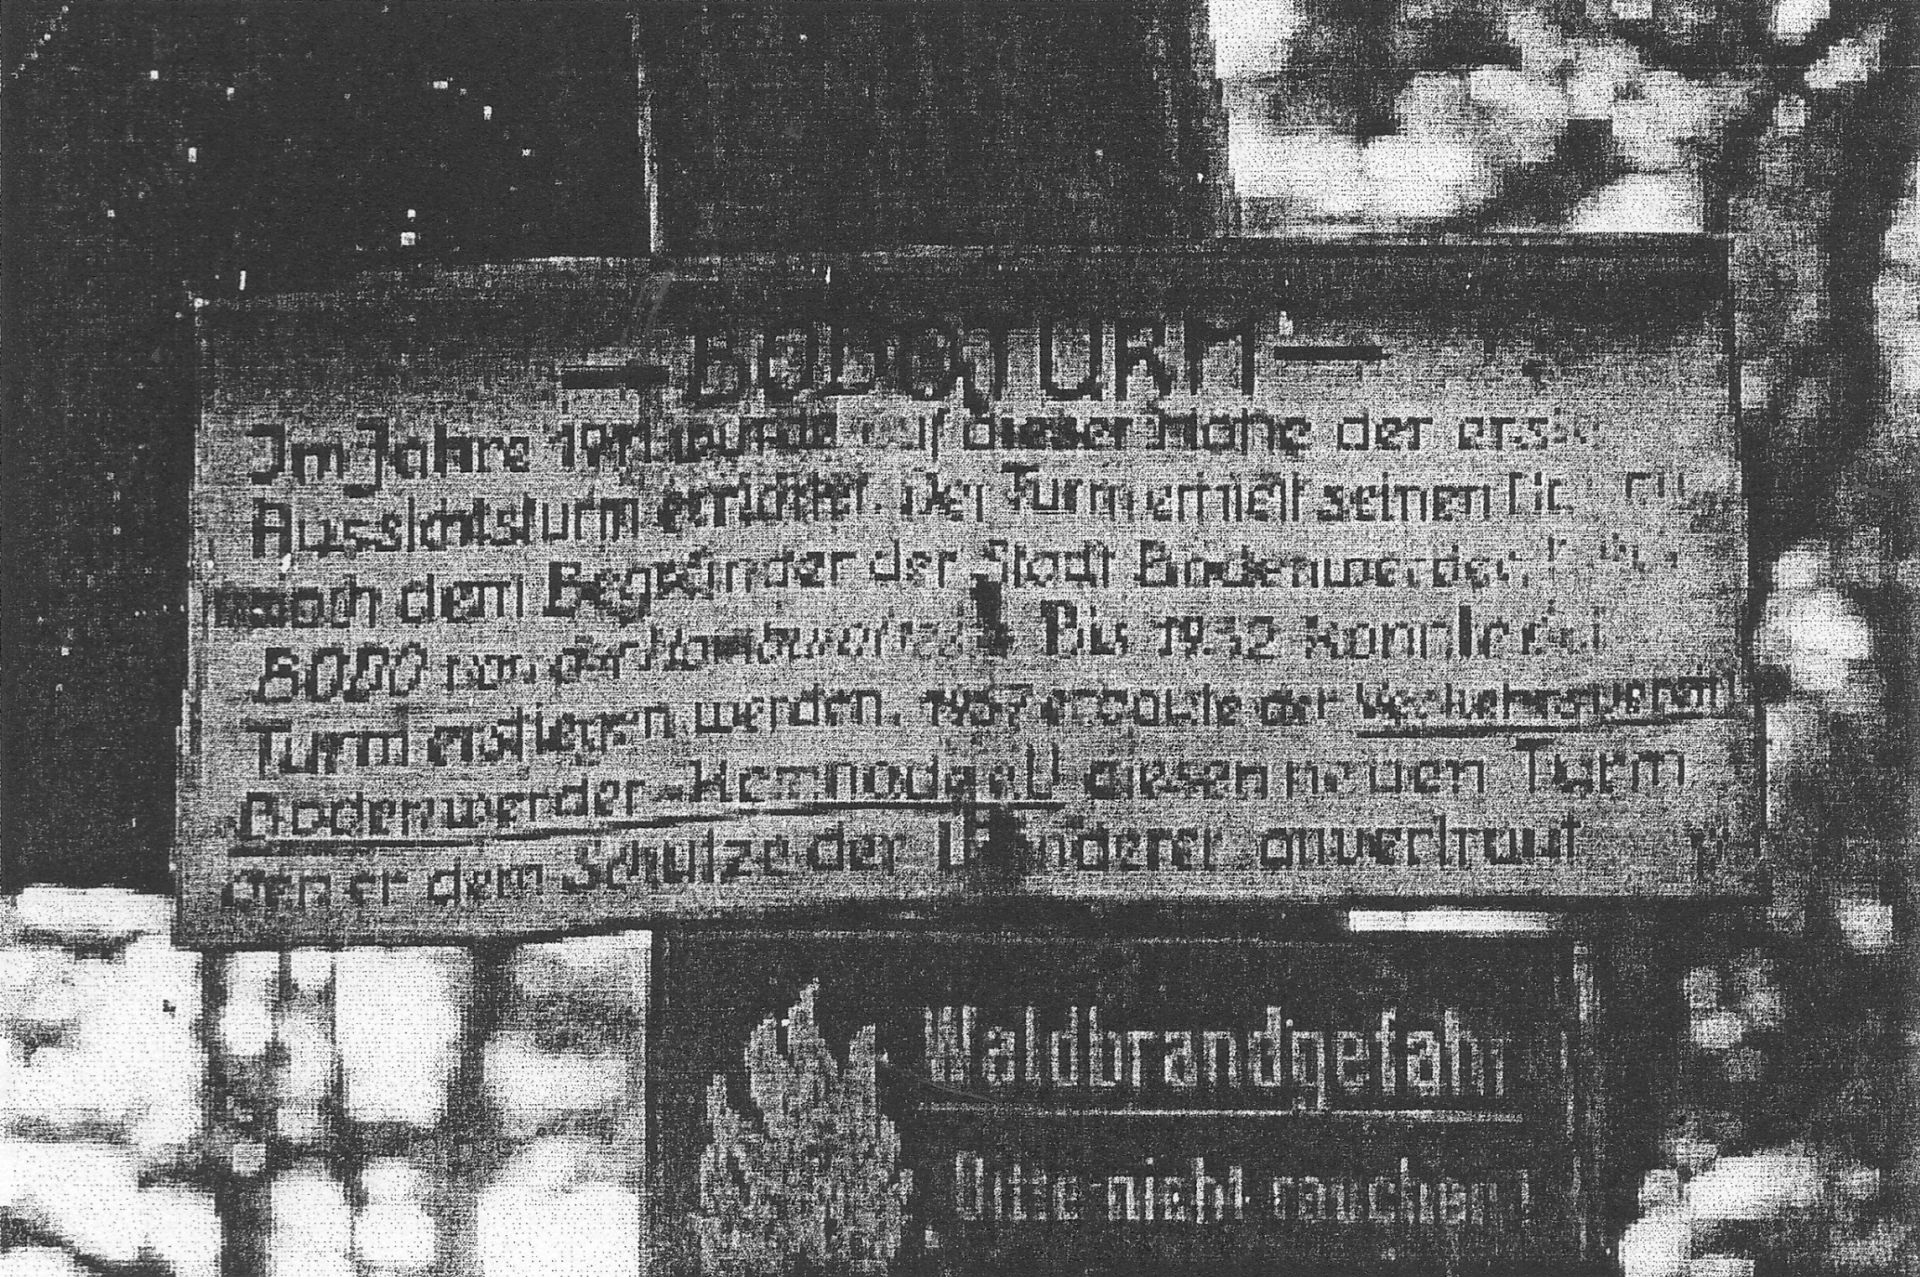 — BODOTURM —
Im Jahre wurde auf dieser Höhe der erste
Aussichtsturm errichtet. Der Turm erhielt seinen
nach dem Begründer der Stadt Bodenwerder,
BODO von Bis 1932 konnte der
Turm erstiegen werden. erbaute der Verkehrsverein
Bodenwerder - Kemnade e.V. diesen neuen Turm
den er dem Schutze der Wanderer anvertraut
Waldbrandgefahr
Bitte nicht rauchen!